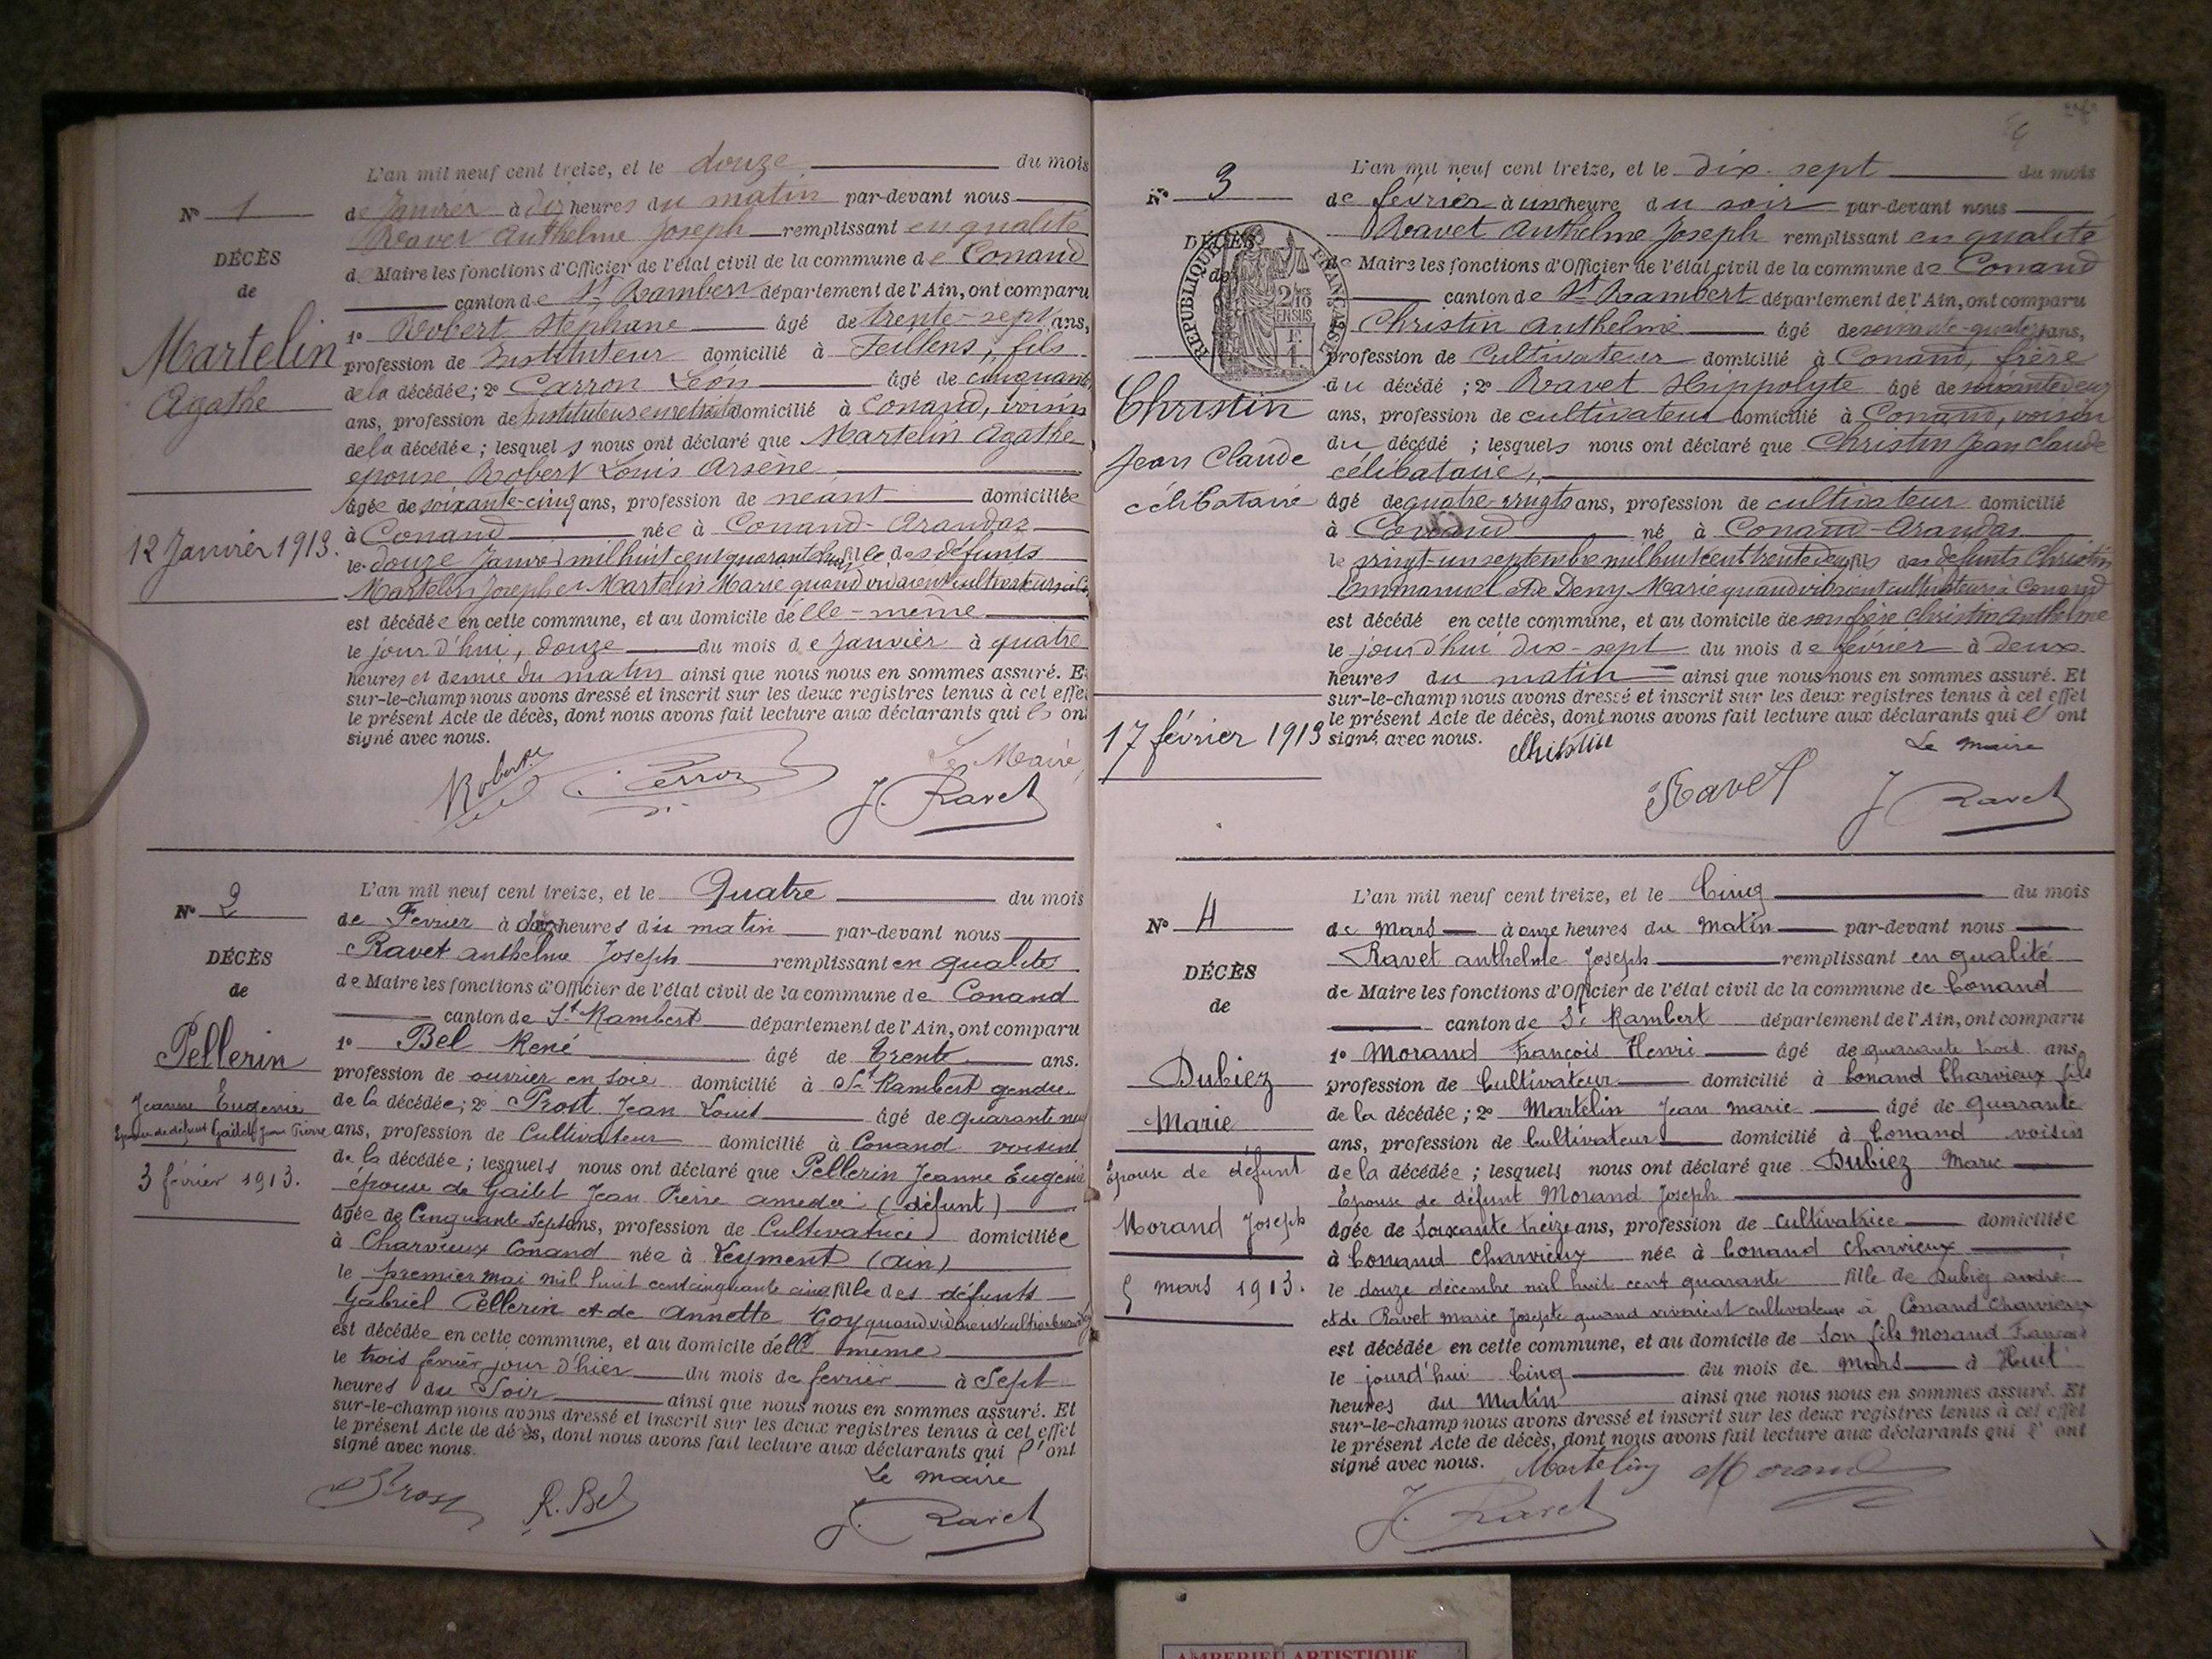 L'an mil neuf cent treize, et le douze du mois
Nº 1
de Janvier à dix heures du matin par-devant nous
Ravet Anthelme Joseph remplissant en qualité
DÉCÈS
de Maire les fonctions d'Officier de l'état civil de la commune de Conand
de
canton de St Rambert département de l'Ain, ont comparu
Martelin
1º Robert Stéphane âgé de trente-sept ans,
profession de Instituteur domicilié à Feillens, fils
Agathe
de la décédée; 2º Carron Léon âgé de cinquante
ans, profession de Instituteur en retraite domicilié à Conand, voisin
de la décédée; lesquels nous ont déclaré que Martelin Agathe
épouse Robert Louis Arsène
âgée de soixante-cinq ans, profession de néant domiciliée
12 Janvier 1913.
à Conand née à Conand-Arandas
le douze Janvier mil huit cent quarante huit fille des défunts
Martelin Joseph et Martelin Marie quand vivaient cultivateurs
est décédée en cette commune, et au domicile d'elle-même
le jour d'hui, douze du mois de Janvier à quatre
heures et demie du matin ainsi que nous nous en sommes assuré. Et
sur-le-champ nous avons dressé et inscrit sur les deux registres tenus à cet effet
le présent Acte de décès, dont nous avons fait lecture aux déclarants qui l'ont
signé avec nous.
Le Maire
Robert
J. Ravet
L'an mil neuf cent treize, et le Quatre du mois
Nº 2
de Fevrier à dix heures du matin par-devant nous
Ravet anthelme Joseph remplissant en qualité
DÉCÈS
de Maire les fonctions d'Officier de l'état civil de la commune de Conand
de
canton de St Rambert département de l'Ain, ont comparu
Pellerin
1º Bel René âgé de trente ans.
profession de ouvrier en soie domicilié à St Rambert gendre
Jeanne Eugenie
de la décédée; 2º Prost Jean Louis âgé de quarante neuf
Epouse de défunt Gailet Jean Pierre
ans, profession de Cultivateur domicilié à Conand voisin
de la décédée; lesquels nous ont déclaré que Pellerin Jeanne Eugenie
3 février 1913.
épouse de Gailet Jean Pierre amedée (défunt)
âgée de Cinquante Sept ans, profession de Cultivatrice domiciliée
à Charvieux Conand née à Leyment (ain)
le premier mai mil huit cent cinquante cinq fille des défunts
Gabriel Pellerin et de Annette Goy quand vivaient cultivateurs
est décédée en cette commune, et au domicile d'elle même
le trois fevrier jour d'hier du mois de fevrier à Sept
heures du Soir ainsi que nous nous en sommes assuré. Et
sur-le-champ nous avons dressé et inscrit sur les deux registres tenus à cet effet
le présent Acte de décès, dont nous avons fait lecture aux déclarants qui l'ont
signé avec nous.
Le maire
Prost R. Bel J. Ravet
L'an mil neuf cent treize, et le dix-sept du mois
Nº 3
de février à une heure du soir par-devant nous
Ravet Anthelme Joseph remplissant en qualité
DÉCÈS
de Maire les fonctions d'Officier de l'état civil de la commune de Conand
de
RÉPUBLIQUE FRANÇAISE
2/10 EN SUS
F. 1
canton de St Rambert département de l'Ain, ont comparu
Christin Anthelme âgé de soixante-quatorze ans,
profession de Cultivateur domicilié à Conand, frère
du décédé; 2º Ravet Hippolyte âgé de soixante deux
Christin
ans, profession de cultivateur domicilié à Conand, voisin
du décédé; lesquels nous ont déclaré que Christin Jean Claude
Jean Claude
célibataire,
célibataire
âgé de quatre-vingts ans, profession de cultivateur domicilié
à Conand né à Conand-Arandas
le vingt-un septembre mil huit cent trente deux fils des défunts Christin
Emmanuel et de Deny Marie quand vivaient cultivateurs à Conand
est décédé en cette commune, et au domicile de son frère Christin Anthelme
le jour d'hui dix-sept du mois de février à deux
heures du matin ainsi que nous nous en sommes assuré. Et
sur-le-champ nous avons dressé et inscrit sur les deux registres tenus à cet effet
le présent Acte de décès, dont nous avons fait lecture aux déclarants qui l'ont
17 février 1913
signé avec nous.
Christin
Le maire
Ravet J. Ravet
L'an mil neuf cent treize, et le Cinq du mois
Nº 4
de Mars à onze heures du Matin par-devant nous
Ravet anthelme Joseph remplissant en qualité
DÉCÈS
de Maire les fonctions d'Officier de l'état civil de la commune de Conand
de
canton de St Rambert département de l'Ain, ont comparu
1º Morand François Henri âgé de quarante trois ans,
Dubiez
profession de Cultivateur domicilié à Conand Charvieux fils
de la décédée; 2º Martelin Jean marie âgé de quarante
Marie
ans, profession de Cultivateur domicilié à Conand voisin
Epouse de défunt
de la décédée; lesquels nous ont déclaré que Dubiez Marie
Epouse de défunt Morand Joseph
Morand Joseph
âgée de Soixante treize ans, profession de Cultivatrice domiciliée
à Conand Charvieux née à Conand Charvieux
5 mars 1913.
le douze décembre mil huit cent quarante fille de Dubiez andré
et de Ravet Marie Josepte quand vivaient cultivateurs à Conand Charvieux
est décédée en cette commune, et au domicile de Son fils Morand François
le jourd'hui Cinq du mois de Mars à Huit
heures du Matin ainsi que nous nous en sommes assuré. Et
sur-le-champ nous avons dressé et inscrit sur les deux registres tenus à cet effet
le présent Acte de décès, dont nous avons fait lecture aux déclarants qui l'ont
signé avec nous. Martelin Morand
J. Ravet
AMBERIEU ARTISTIQUE